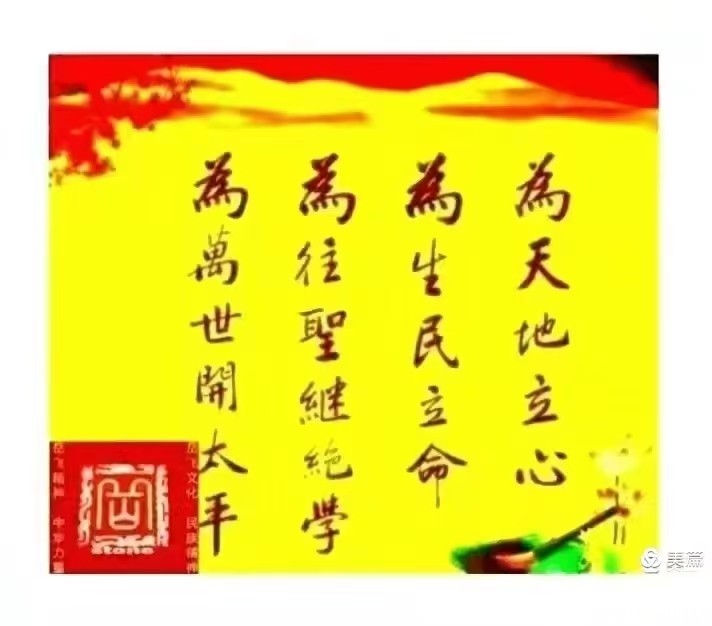 為天地立心
為生民立命
為往聖継絶學
為萬世開太平
岳飞精神 中华力量
岳飞文化 民族精神
stone
美篇